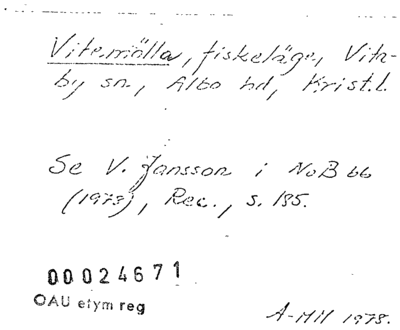 Vitemölla, fiskeläge, Vita-
by sn, Albo hd, Krist.l.
Se V. Jansson i NoB 66
(1978), Rec., s. 185.
00024671
OAU etym reg
A-MH 1978.